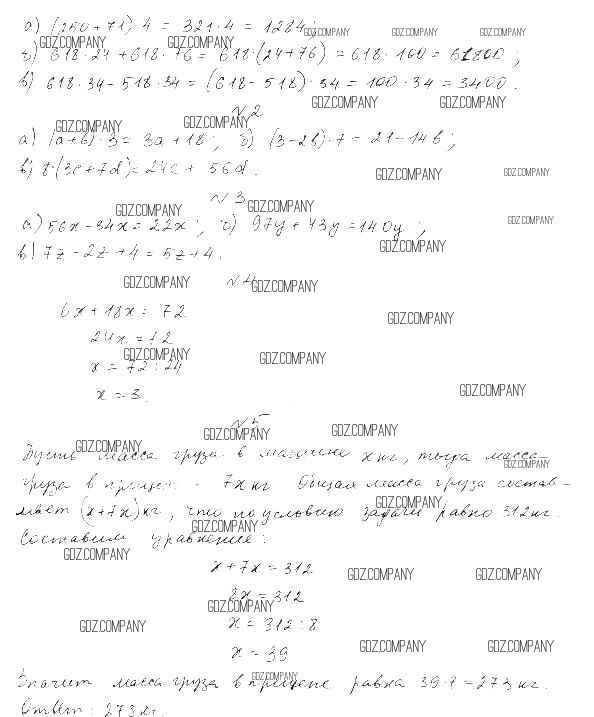 а) (250+71)·4 = 321·4 = 1284;
GDZ.COMPANY GDZ.COMPANY GDZ.COMPANY
GDZ.COMPANY GDZ.COMPANY
б) 618·24+618·76 = 618·(24+76) = 618·100 = 61800;
в) 618·34-518·34 = (618-518)·34 = 100·34 = 3400.
GDZ.COMPANY GDZ.COMPANY
№2
GDZ.COMPANY GDZ.COMPANY
а) (a+6)·3 = 3a+18; б) (3-2b)·7 = 21-14b;
в) 8·(3c+7d) = 24c + 56d.
GDZ.COMPANY GDZ.COMPANY
№3
GDZ.COMPANY GDZ.COMPANY GDZ.COMPANY
а) 56x-34x = 22x; б) 97y+43y = 140y;
в) 7z-2z+4 = 5z+4.
GDZ.COMPANY
№4
GDZ.COMPANY GDZ.COMPANY
6x+18x = 72
GDZ.COMPANY
24x = 72
GDZ.COMPANY GDZ.COMPANY
x = 72:24
x = 3.
GDZ.COMPANY
№5
GDZ.COMPANY GDZ.COMPANY
GDZ.COMPANY
Пусть масса груза в машине x кг, тогда масса
GDZ.COMPANY
груза в прицепе - 7x кг. Общая масса груза состав-
GDZ.COMPANY
ляет (x+7x) кг, что по условию задачи равно 312 кг.
GDZ.COMPANY
Составим уравнение:
GDZ.COMPANY
x+7x = 312
GDZ.COMPANY GDZ.COMPANY
8x = 312
GDZ.COMPANY
x = 312:8
GDZ.COMPANY
x = 39
GDZ.COMPANY GDZ.COMPANY
GDZ.COMPANY
Значит масса груза в прицепе равна 39·7 = 273 кг.
Ответ: 273 кг.